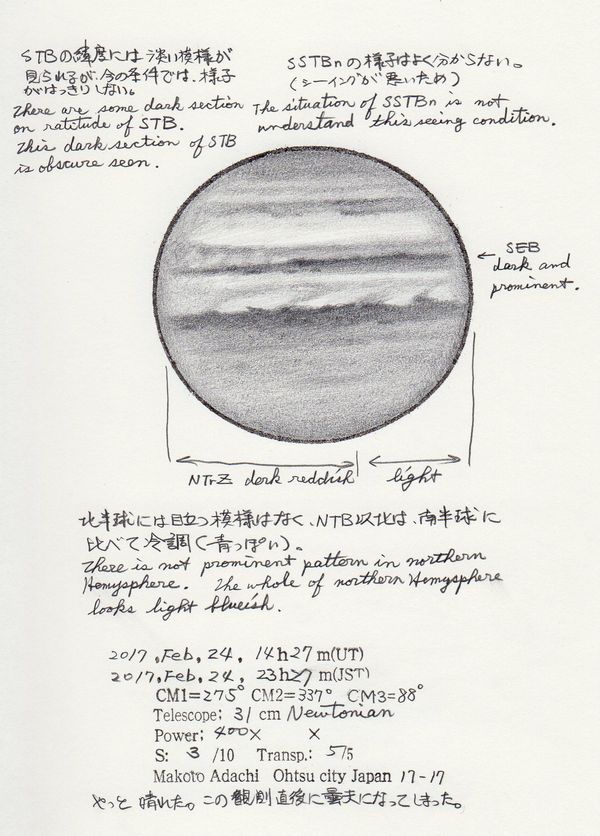 STBの緯度には淡い模様が
見られるが、今の条件では、様子
がはっきりしない。
There are some dark section
on ratitude of STB.
This dark section of STB
is obscure seen.
SSTBnの様子はよく分からない。
(シーイングが悪いため)
The situation of SSTBn is not
understand this seeing condition.
← SEB
dark and
prominent.
NTrZ dark reddish
light
北半球には目立つ模様はなく、NTB以北は、南半球に
比べて冷調(青っぽい)。
There is not prominent pattern in northern
Hemysphere. The whole of northern Hemysphere
looks light blueish.
2017, Feb, 24, 14h27m(UT)
2017, Feb, 24, 23h27m(JST)
CM1=275° CM2=337° CM3=88°
Telescope; 31 cm Newtonian
Power; 400× ×
S: 3 /10 Transp.: 5/5
Makoto Adachi Ohtsu city Japan 17-17
やっと晴れた。この観測直後に曇天になってしまった。